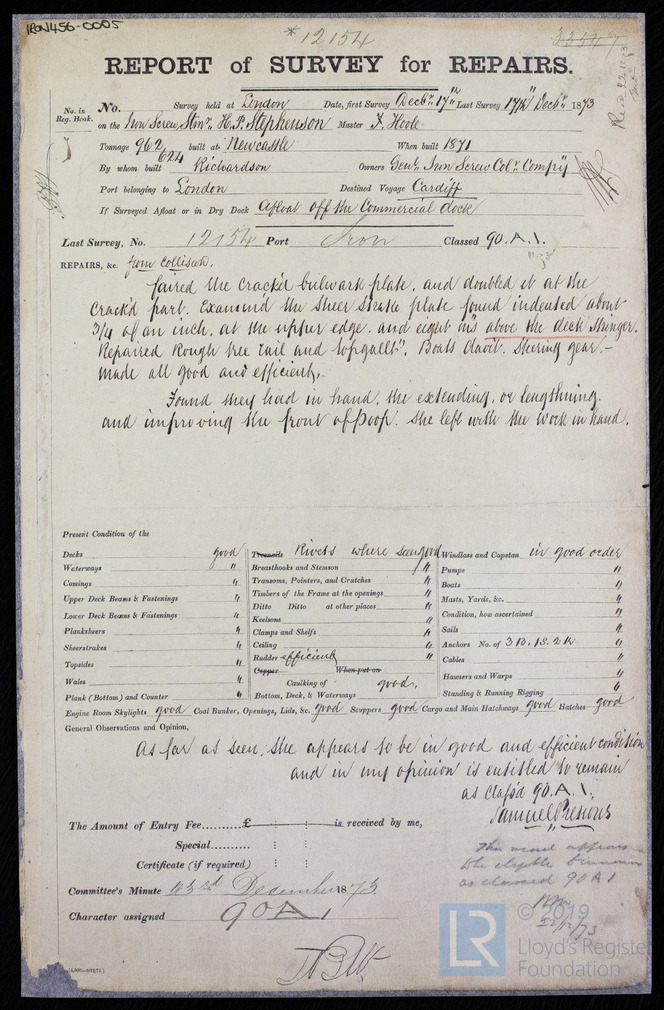 IRON456-0005
*12154
REPORT of SURVEY for REPAIRS.
No. in Reg. Book.
No. Survey held at London Date, first Survey Decbr 17th Last Survey 17th Decbr 1873
on the Iron Screw Stmr H. P. Stephenson Master F. Hoole
Tonnage 962 built at Newcastle When built 1871
624
By whom built Richardson Owners Genl. Iron Screw Colr. Compy
Port belonging to London Destined Voyage Cardiff
If Surveyed Afloat or in Dry Dock Afloat off the Commercial dock
Last Survey, No. 12154 Port Iron Classed 90.A.1.
REPAIRS, &c. from Collision.
faired the crack'd bulwark plate, and doubled it at the
crack'd part. Examin'd the Sheer Strake plate found indented about
3/4 of an inch, at the upper edge. and eight ins above the deck Stringer.
Repaired Rough tree rail and topgallt". Boats davit. Steering gear.-
made all good and efficient,.
Found they had in hand, the extending, or lengthning.
and improving the front of Poop. She left with the work in hand.
Present Condition of the
Decks good Treenails Rivets where seen good Windlass and Capstan in good order
Waterways " Breasthooks and Stemson " Pumps "
Comings " Transoms, Pointers, and Crutches " Boats "
Upper Deck Beams & Fastenings " Timbers of the Frame at the openings " Masts, Yards, &c. "
Lower Deck Beams & Fastenings " Ditto Ditto at other places " Condition, how ascertained "
Planksheers " Keelsons " Sails "
Sheerstrakes " Clamps and Shelfs " Anchors No. of 3 B. 1 S. 2 K "
Topsides " Ceiling " Cables "
Wales " Rudder efficient " Hawsers and Warps "
Plank (Bottom) and Counter " Copper When put on Standing & Running Rigging "
Caulking of good.
Bottom, Deck, & Waterways
Engine Room Skylights good Coal Bunker, Openings, Lids, &c. good Scuppers good Cargo and Main Hatchways good Hatches good
General Observations and Opinion,
As far as seen. She appears to be in good and efficient condition
and in my opinion is entitled to remain
as Class'd 90.A.1.
Samuel Pretious
The Amount of Entry Fee......... £ is received by me,
Special
Certificate (if required)
This vessel appears
to be eligible to remain
as classed 90 A 1
22/12/73
Committee's Minute 23rd December 1873
Character assigned 90 A 1
LR © 2019
Lloyd's Register
Foundation